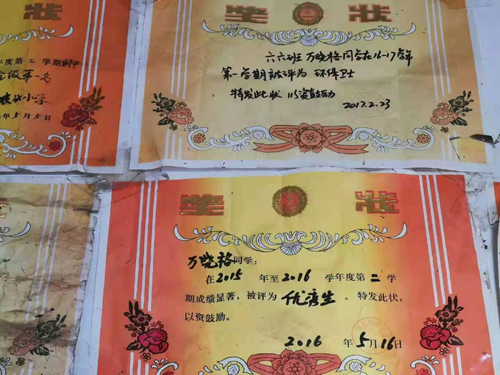 状
年度第二学期
级第一名
小学
奖 状
六六班 万晓格同学在16-17学年
第一学期被评为 环保卫士
特发此状 以资鼓励
2017.2.23
奖 状
万晓格同学:
在2015年至2016学年度第二学
期成绩显著,被评为优秀生。特发此状,
以资鼓励。
2016年5月16日